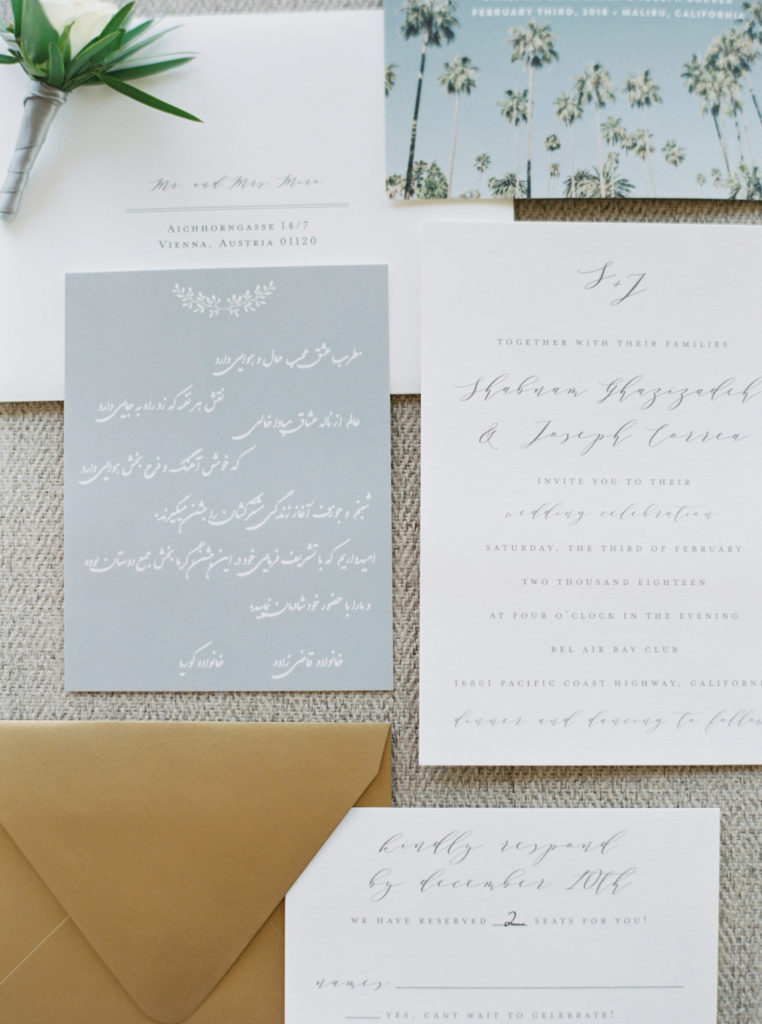 FEBRUARY THIRD, 2018 • MALIBU, CALIFORNIA
Mr. and Mrs.
AICHHORNGASSE 14/7
VIENNA, AUSTRIA 01120
مطرب عشق عجب حال و هوایی دارد
نقش هر نغمه که زد راه به جایی دارد
عالم از ناله عشاق مبادا خالی
که خوش آهنگ و فرح بخش هوایی دارد
شبنم و جوزف آغاز زندگی مشترکشان را جشن میگیرند.
امیدواریم که با تشریف فرمایی خود در این جشن گرما بخش جمع دوستان بوده
و ما را با حضور خود شادمان نمایید.
خانواده قاضی زاده خانواده کوریا
S + J
TOGETHER WITH THEIR FAMILIES
Shabnam Ghazizadeh
& Joseph Correa
INVITE YOU TO THEIR
wedding celebration
SATURDAY, THE THIRD OF FEBRUARY
TWO THOUSAND EIGHTEEN
AT FOUR O'CLOCK IN THE EVENING
BEL AIR BAY CLUB
16801 PACIFIC COAST HIGHWAY, CALIFORNI
dinner and dancing to follow
kindly respond
by december 10th
WE HAVE RESERVED 2 SEATS FOR YOU!
names
YES, CANT WAIT TO CELEBRATE!